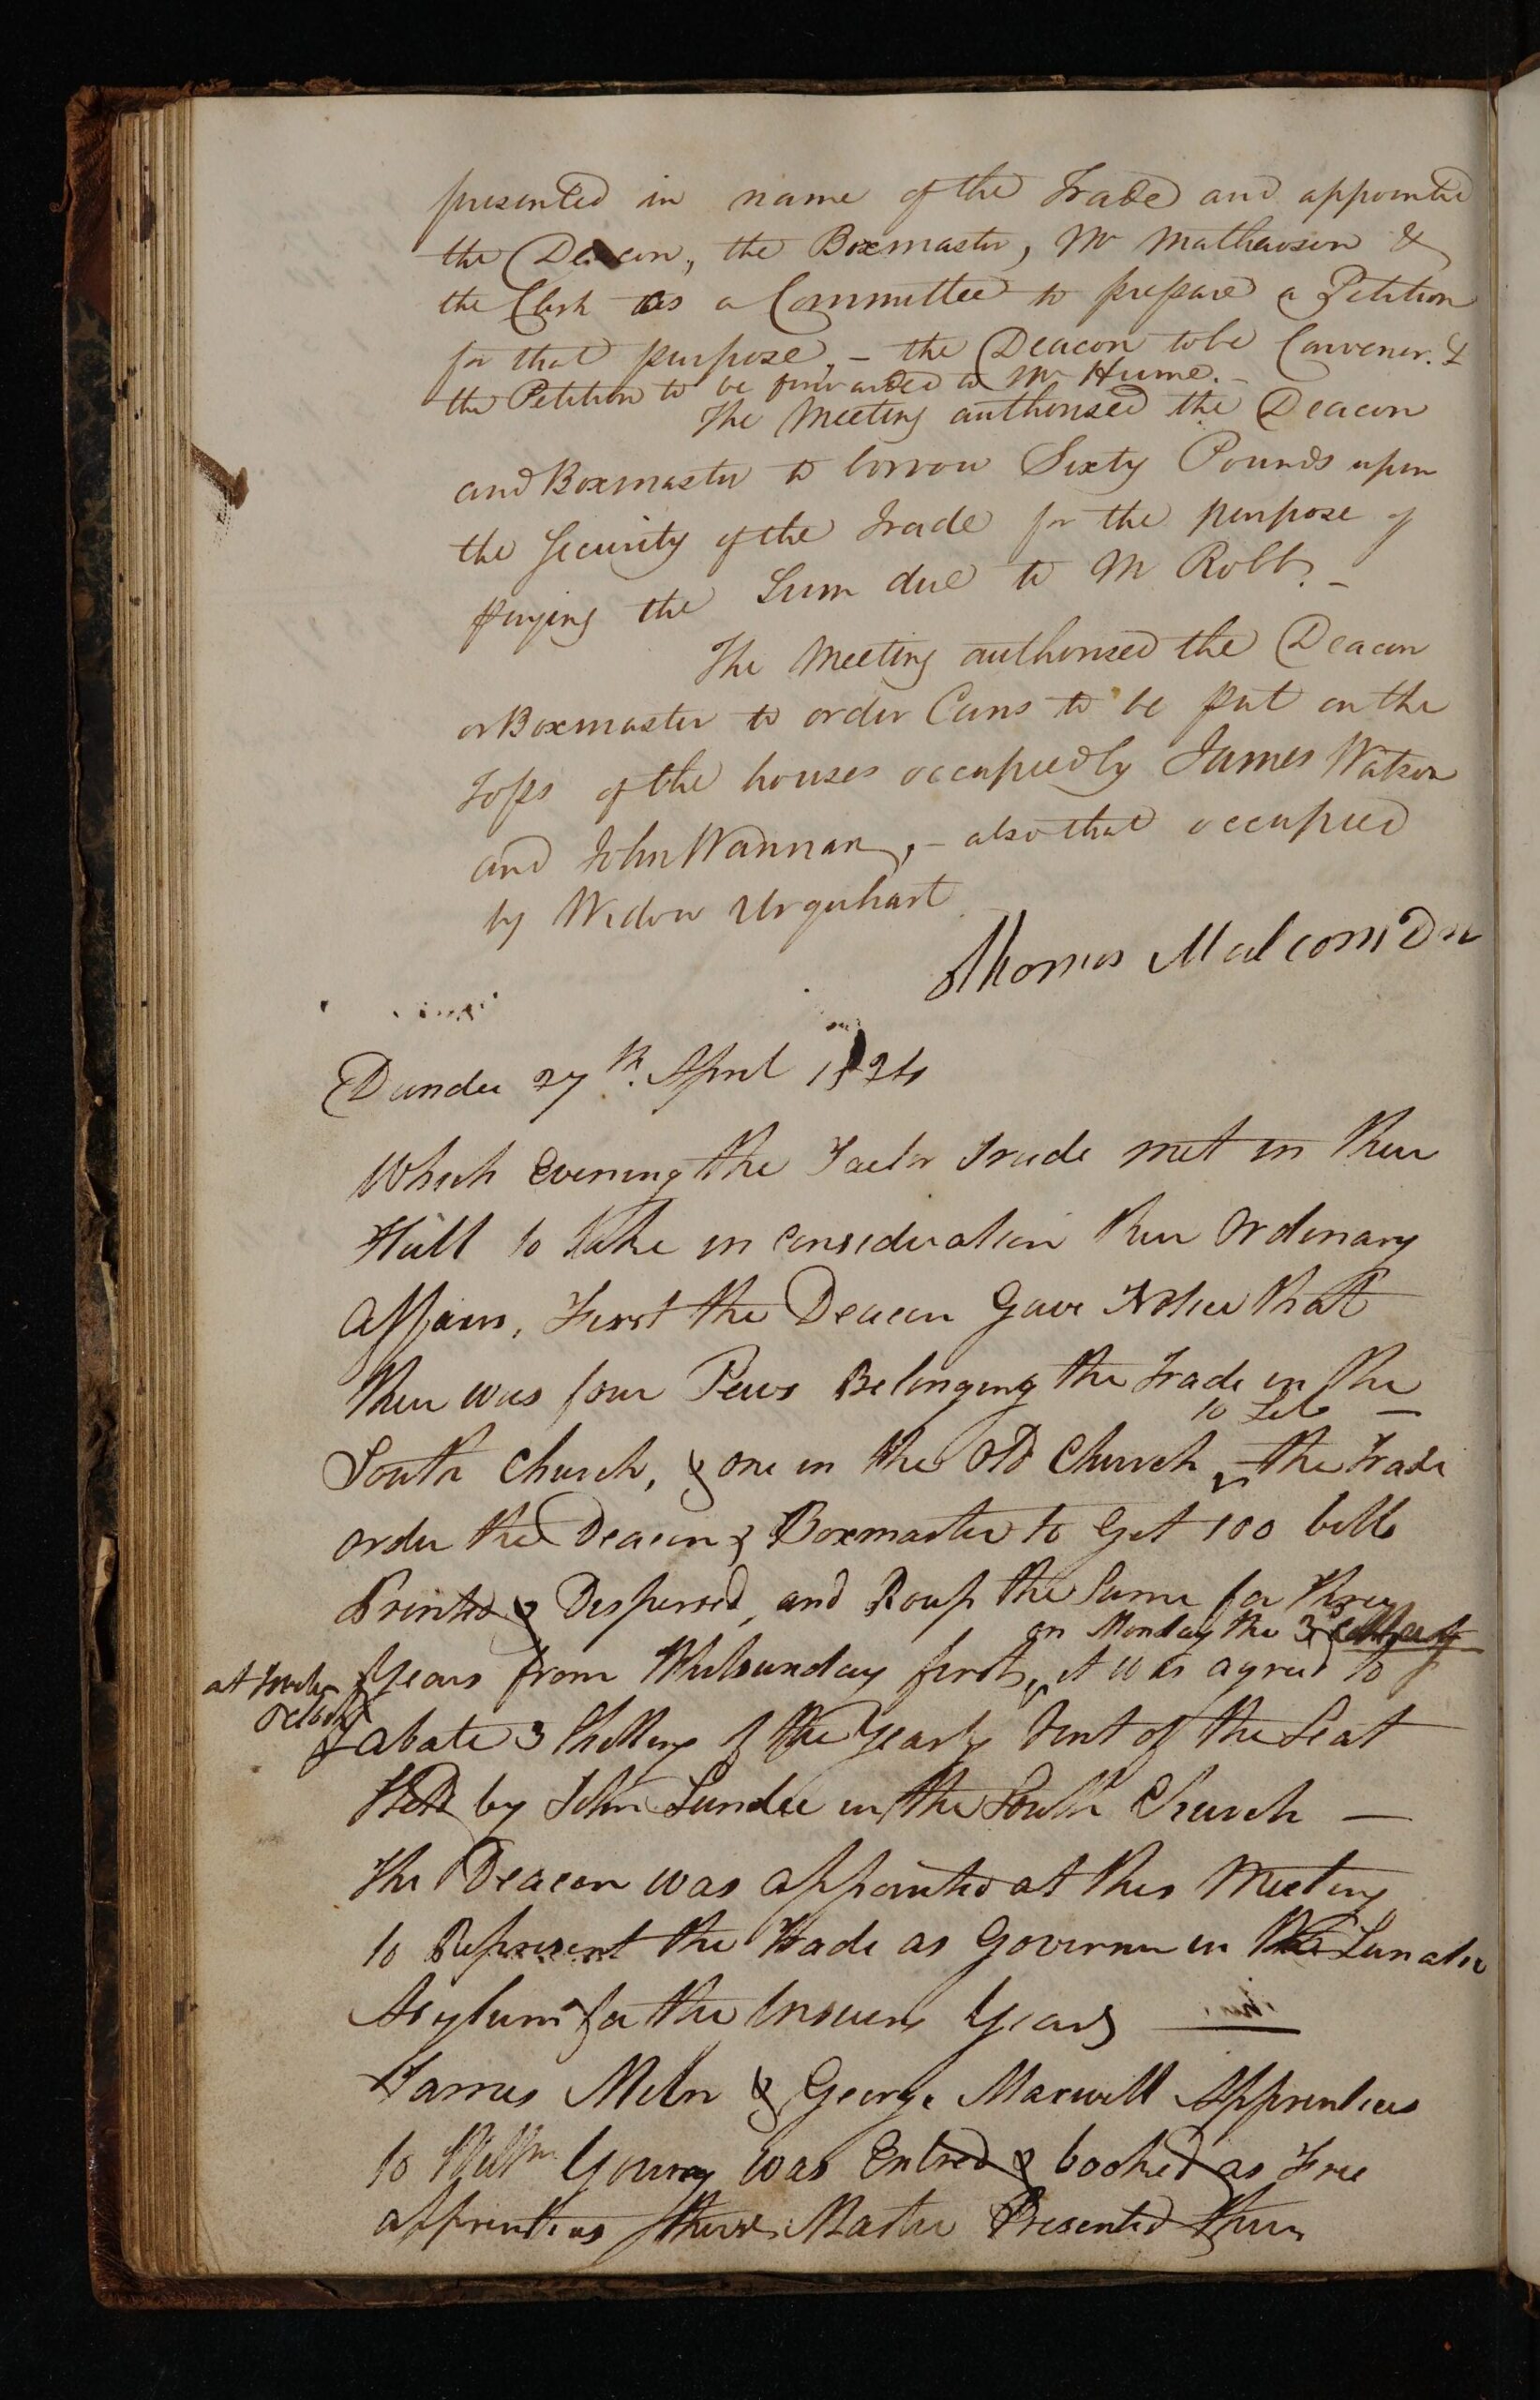 presented in name of the Trade and appointed
the Deacon, the Boxmaster, Mr Mathewson &
the Clerk as a Committee to prepare a Petition
for that purpose, – the Deacon to be Convener. &
the Petition to be forwarded to Mr Hume. –
The Meeting authorised the Deacon
and Boxmaster to borrow Sixty Pounds upon
the Security of the Trade for the purpose of
paying the Sum due to Mr Robb. –
The Meeting authorised the Deacon
or Boxmaster to order Cans to be put on the
Tops of the houses occupied by James Watson
and John Wannan, – also that occupied
by Widow Urquhart
Thomas Malcom Dn
Dundee 27th. April 1824
Which Evening the Taelor Trade met in their
Hall to take in consideration their Ordinary
Affairs, First the Deacon Gave Notice that
their was four Pews Belonging the Trade in the
to Let –
South Church, & one in the Old Church the Trade
order the Deacon & Boxmaster to Get 100 bills
Printed & Dispersed, and Roup the Same for three
on Monday the 3d
at twelve Years from Whitsunday first, it was agreed to
oclock
abate 3 Shilling of the Yearly Rent of the Seat
Held by John Lundie in the South Church –
The Deacon was appointed at this Meeting
to Represent the Trade as Governor in the Lunatic
Asylum for the Insuing Year
James Miln & George Maxwell Apprentices
to Willm Young was Entred & booked as Free
apprentices there Master Presented them